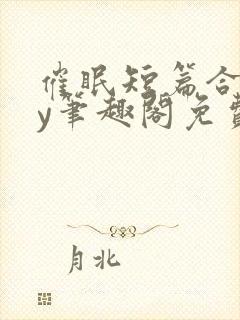 催眠短篇合
y笔趣阁免费
月北